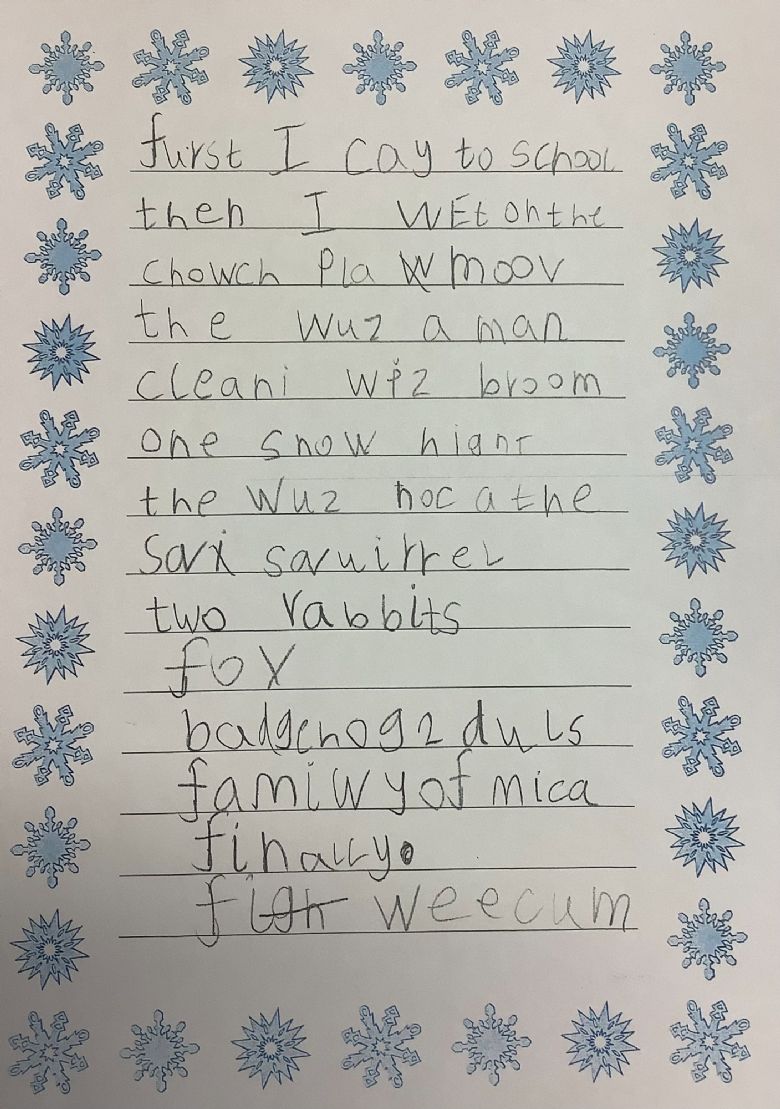 furst I cay to school
then I wEt on the
chowch Pla W moov
the wuz a man
cleani wiz broom
one snow hignt
the wuz noc a the
Sari sqruirrel
two rabbits
fox
badgenogz duls
famiwy of mica
finally.
figh weecum